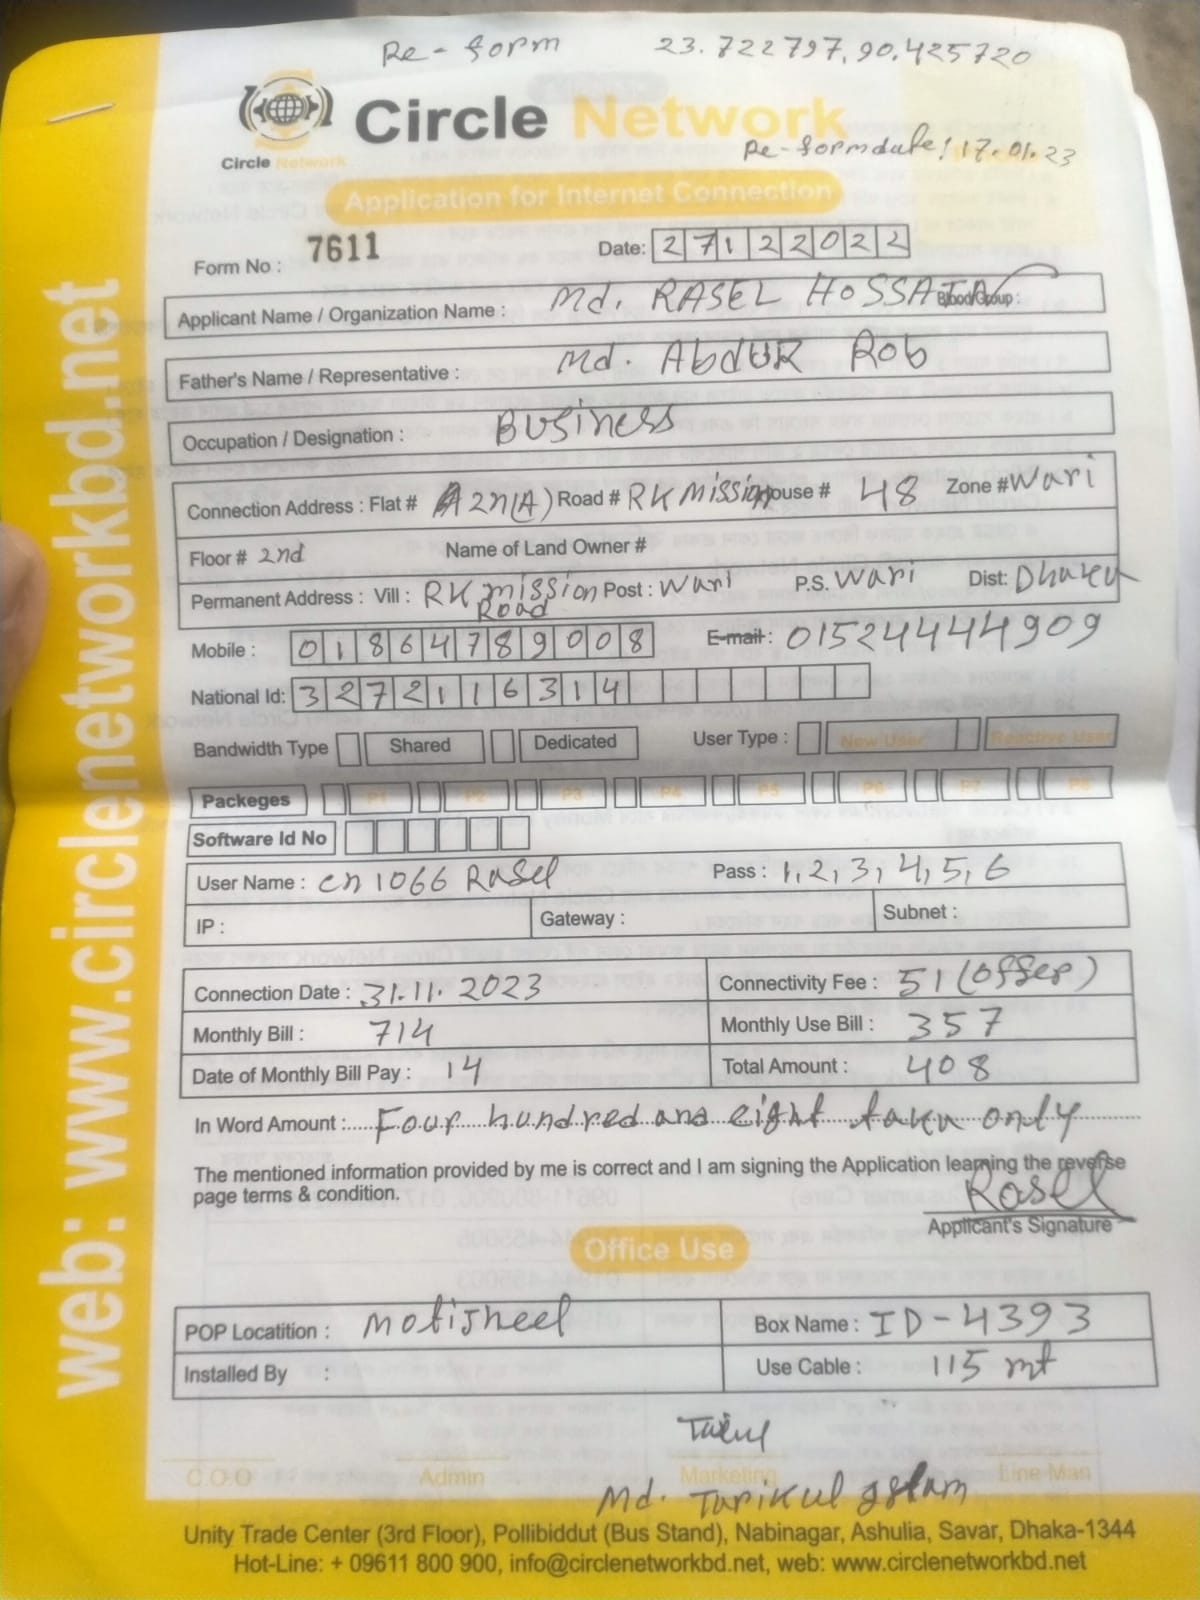 Re-form 23.722797,90.425720
Circle Network
Circle Network
Re-formdate! 17.01.23
Application for Internet Connection
Form No : 7611 Date: 27122022
Applicant Name / Organization Name : Md. RASEL HOSSAIN Blood Group :
Father's Name / Representative : Md. AbdUR Rob
Occupation / Designation : BUSiness
Connection Address : Flat # A2n(A) Road # RK Mission House # 48 Zone # Wari
Floor # 2nd Name of Land Owner #
Permanent Address : Vill : RK mission Road Post : Wari P.S. Wari Dist: Dhaka
Mobile : 01864789008 E-mail : 01524444909
National Id: 3272116314
Bandwidth Type Shared Dedicated User Type : New User Reactive User
Packeges P1 P2 P3 P4 P5 P6 P7 P8
Software Id No
User Name : cn1066 Rasel Pass : 1,2,3,4,5,6
IP : Gateway : Subnet :
Connection Date : 31.11.2023 Connectivity Fee : 51 (offer)
Monthly Bill : 714 Monthly Use Bill : 357
Date of Monthly Bill Pay : 14 Total Amount : 408
In Word Amount : Four hundred and eight taka only
The mentioned information provided by me is correct and I am signing the Application learning the reverse
page terms & condition.
Rasel
Applicant's Signature
Office Use
POP Locatition : Motijheel Box Name : ID-4393
Installed By : Use Cable : 115 mt
C.O.O Admin Marketing Line Man
Md. Tarikul Islam
Unity Trade Center (3rd Floor), Pollibiddut (Bus Stand), Nabinagar, Ashulia, Savar, Dhaka-1344
Hot-Line: + 09611 800 900, info@circlenetworkbd.net, web: www.circlenetworkbd.net
web: www.circlenetworkbd.net